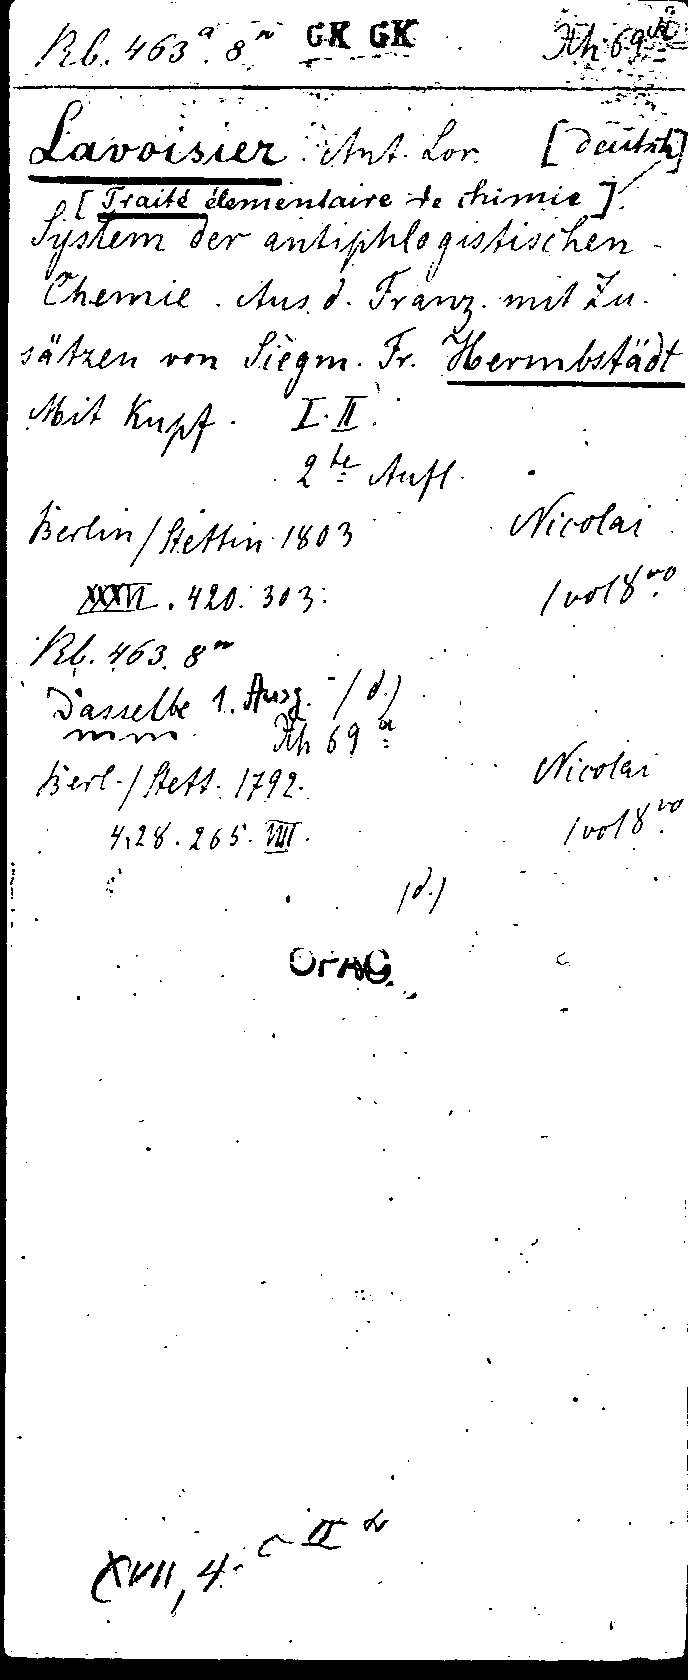 Rb. 463ª. 8º GK GK Rh 69
Lavoisier Ant. Lor. [deutsch]
[Traité élementaire de chimie]
System der antiphlogistischen
Chemie. Aus d. Franz. mit Zu-
sätzen von Siegm. Fr. Hermbstädt
Mit Kupf. I. II.
2te Aufl.
Berlin/Stettin 1803 Nicolai
XXXVI. 420. 303. 1 vol 8vo
Rb. 463. 8º
Dasselbe 1. Ausg. /d./
Rh 69ª
Berl./Stett. 1792. Nicolai
4,28. 265. VIII. 1 vol 8vo
/d./
OPAC
XVII, 4. c II